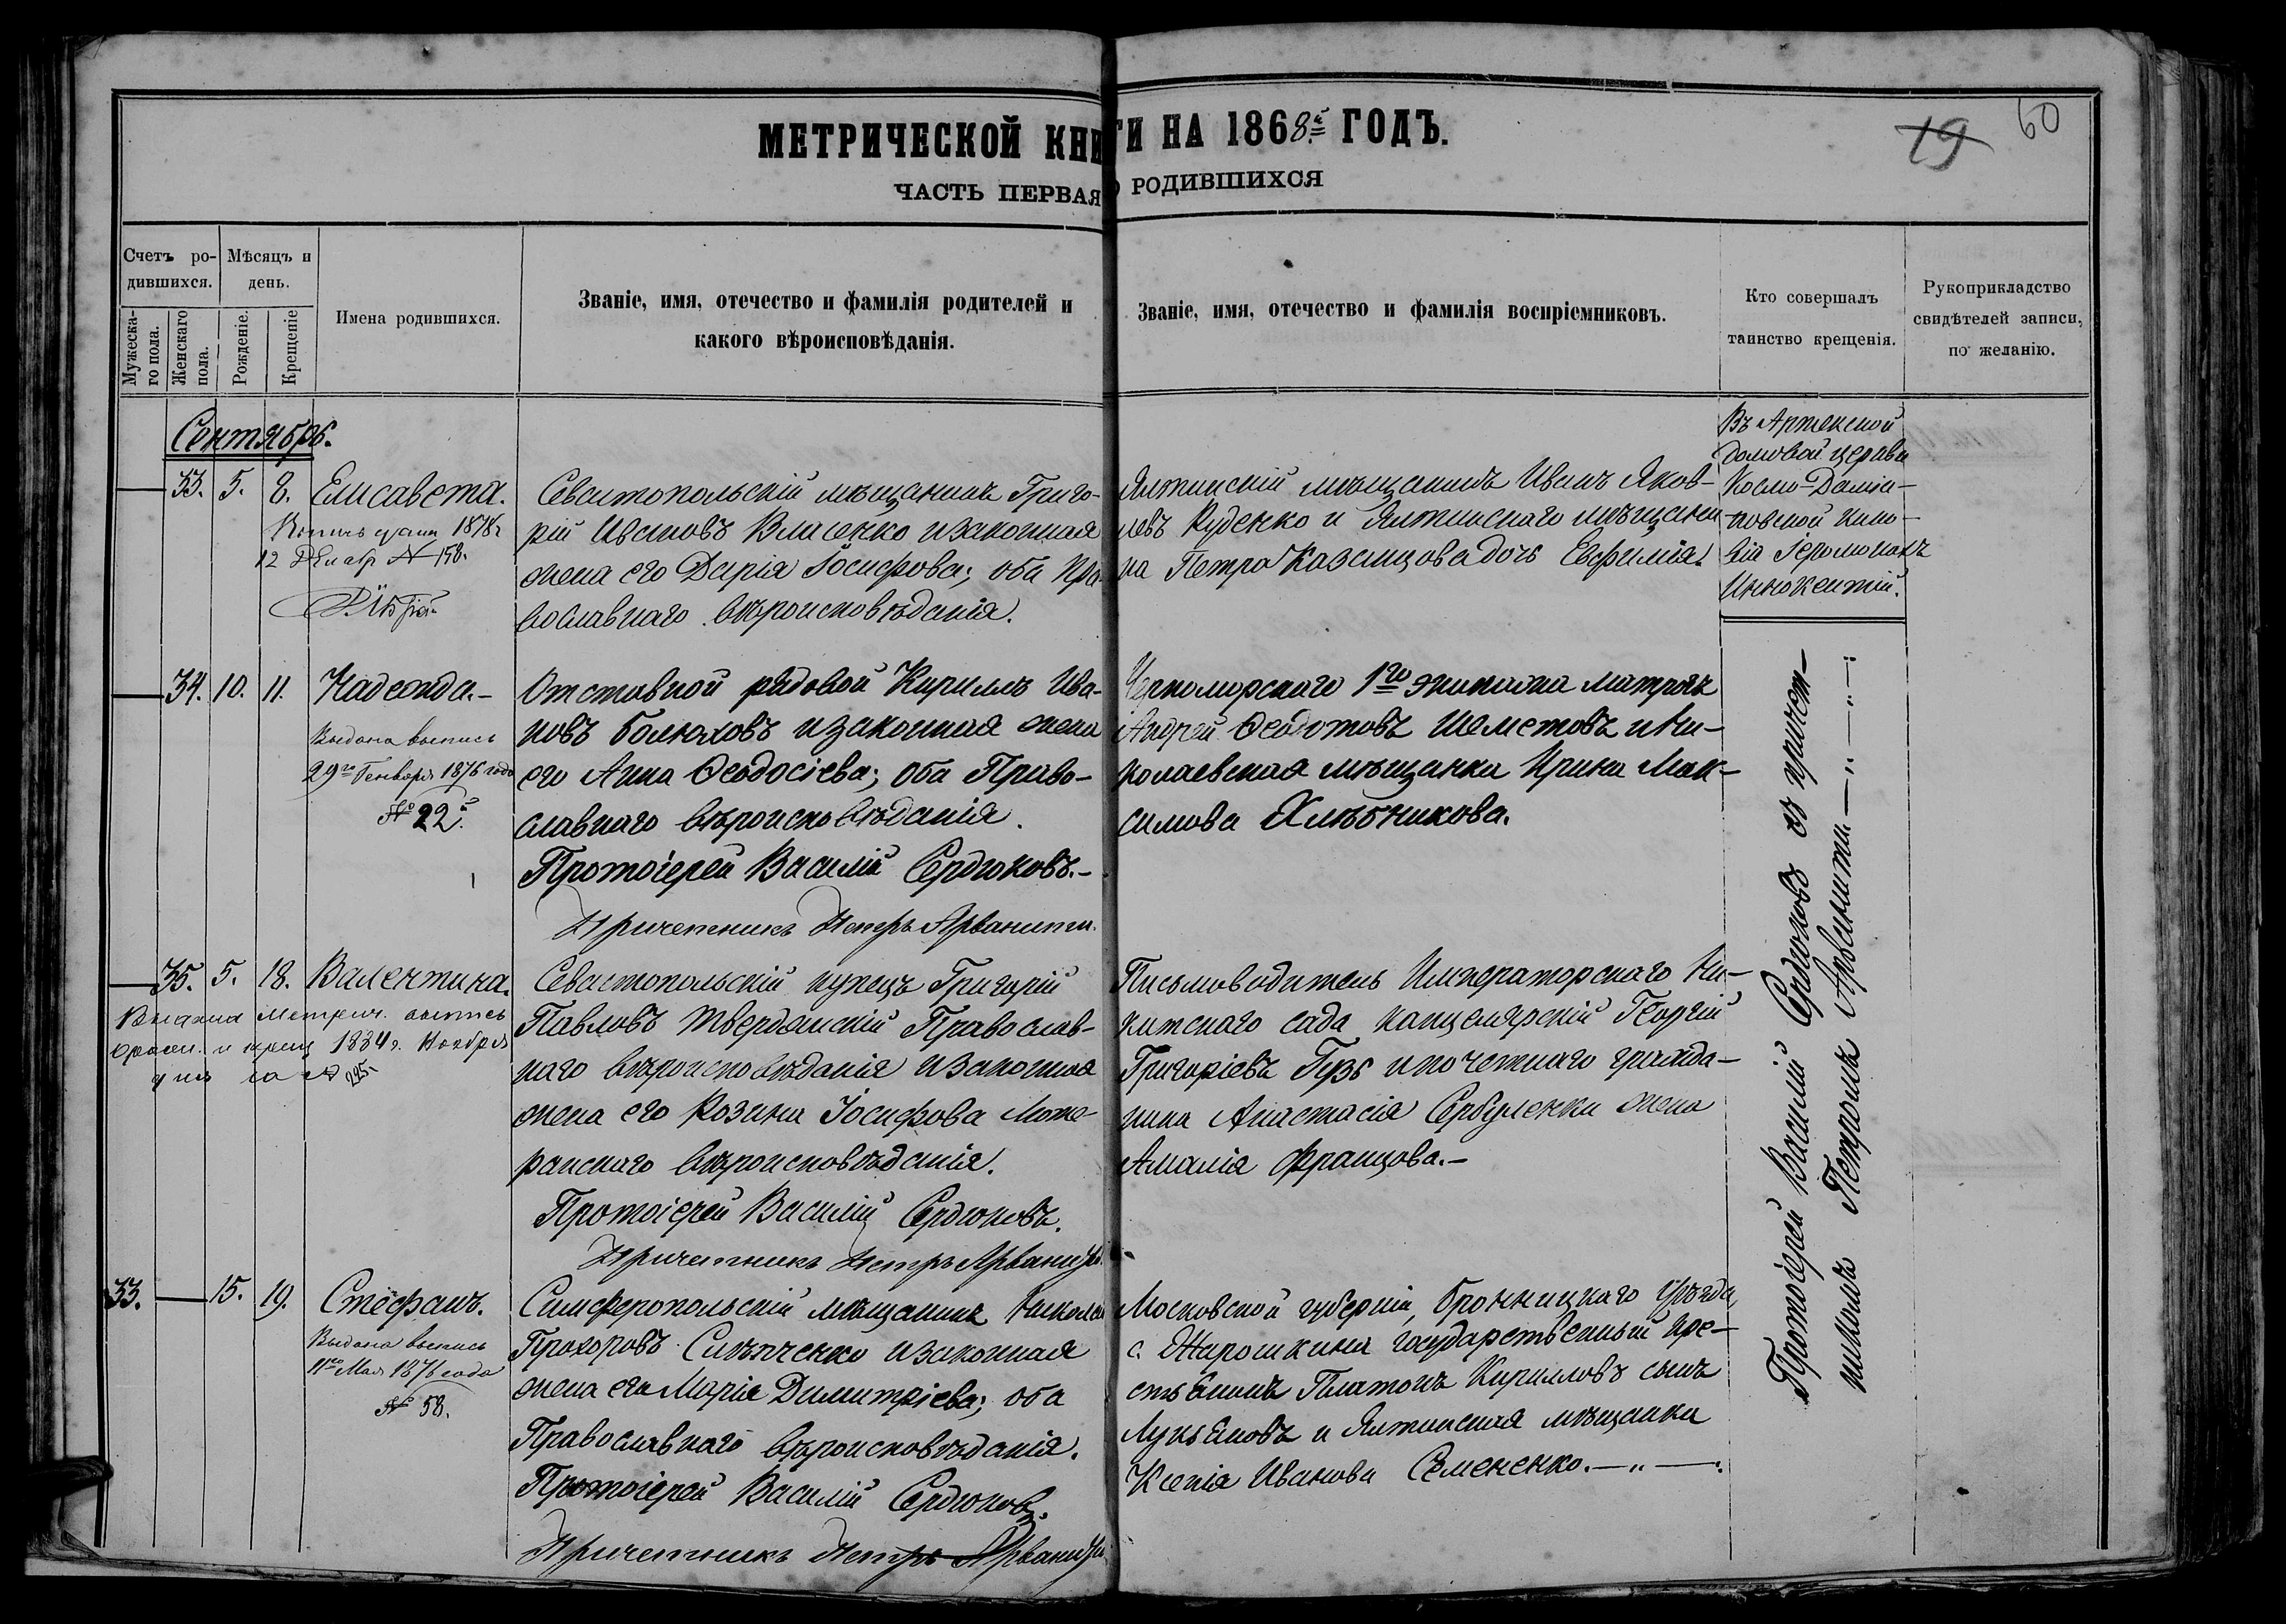 МЕТРИЧЕСКОЙ КНИГИ НА 1868й ГОДЪ.
19 60
ЧАСТЬ ПЕРВАЯ О РОДИВШИХСЯ
Счетъ ро-
дившихся.
Мужеска-
го пола.
Женскаго
пола.
Мѣсяцъ и
день.
Рожденіе.
Крещеніе
Имена родившихся.
Званіе, имя, отечество и фамилія родителей и
какого вѣроисповѣданія.
Званіе, имя, отечество и фамилія воспріемниковъ.
Кто совершалъ
таинство крещенія.
Рукоприкладство
свидѣтелей записи,
по желанію.
Сентябрь.
33. 5. 8. Елисавета.
12 Декабр № 158.
Севастопольскій мѣщанинъ Григо-
рій Ивановъ Власенко и законная
жена его Дарія Іосифова; оба Пра-
вославнаго вѣроисповѣданія.
Ялтинскій мѣщанинъ Иванъ Яков-
левъ Руденко и Ялтинскаго мѣщани-
на Петра Казанцова дочь Евфимія.
Въ Артекской
домовой церкви
Космо-Даміа-
новской кино-
віи Іеромонахъ
Иннокентій.
34. 10. 11. Надежда.-
Выдана выпись
29го Генваря 1876 года
№ 22й.
Отставной рядовой Кириллъ Ива-
новъ Болюховъ и законная жена
его Анна Ѳеодосіева; оба Право-
славнаго вѣроисповѣданія.
Протоіерей Василій Сердюковъ.-
Причетникъ Петръ Арванити.
Черноморскаго 1го экипажа матросъ
Андрей Ѳедотовъ Шеметовъ и Ни-
колаевская мѣщанка Ирина Мак-
симова Хлѣбникова.
35. 5. 18. Валентина.
Выдана метрич. выпись
о рожд. и крещ 1884 г. Ноября
дня за № 295.
Севастопольскій купецъ Григорій
Павловъ Твердянскій Православ-
наго вѣроисповѣданія и законная
жена его Розина Іосифова Люте-
ранскаго вѣроисповѣданія.
Протоіерей Василій Сердюковъ.
Причетникъ Петръ Арванити.
Письмоводитель Императорскаго Ни-
китскаго сада канцелярскій Георгій
Григоріевъ Гузь и почетнаго гражда-
нина Анастасія Сербуленки жена
Амалія Францова.-
33. 15. 19. Стефанъ.
Выдана выпись
11го Мая 1876 года
№ 58.
Симферопольскій мѣщанинъ Николай
Прохоровъ Слѣпченко и законная
жена его Марія Димитріева; оба
Православнаго вѣроисповѣданія.
Протоіерей Василій Сердюковъ.
Причетникъ Петръ Арванити
Московской губерніи, Бронницкаго уѣзда,
с. Жирошкина государственный кре-
стьянинъ Платонъ Кирилловъ сынъ
Лукьяновъ и Ялтинская мѣщанка
Ксенія Иванова Семененко.
Протоіерей Василій Сердюковъ съ причет-
никомъ Петромъ Арванити.